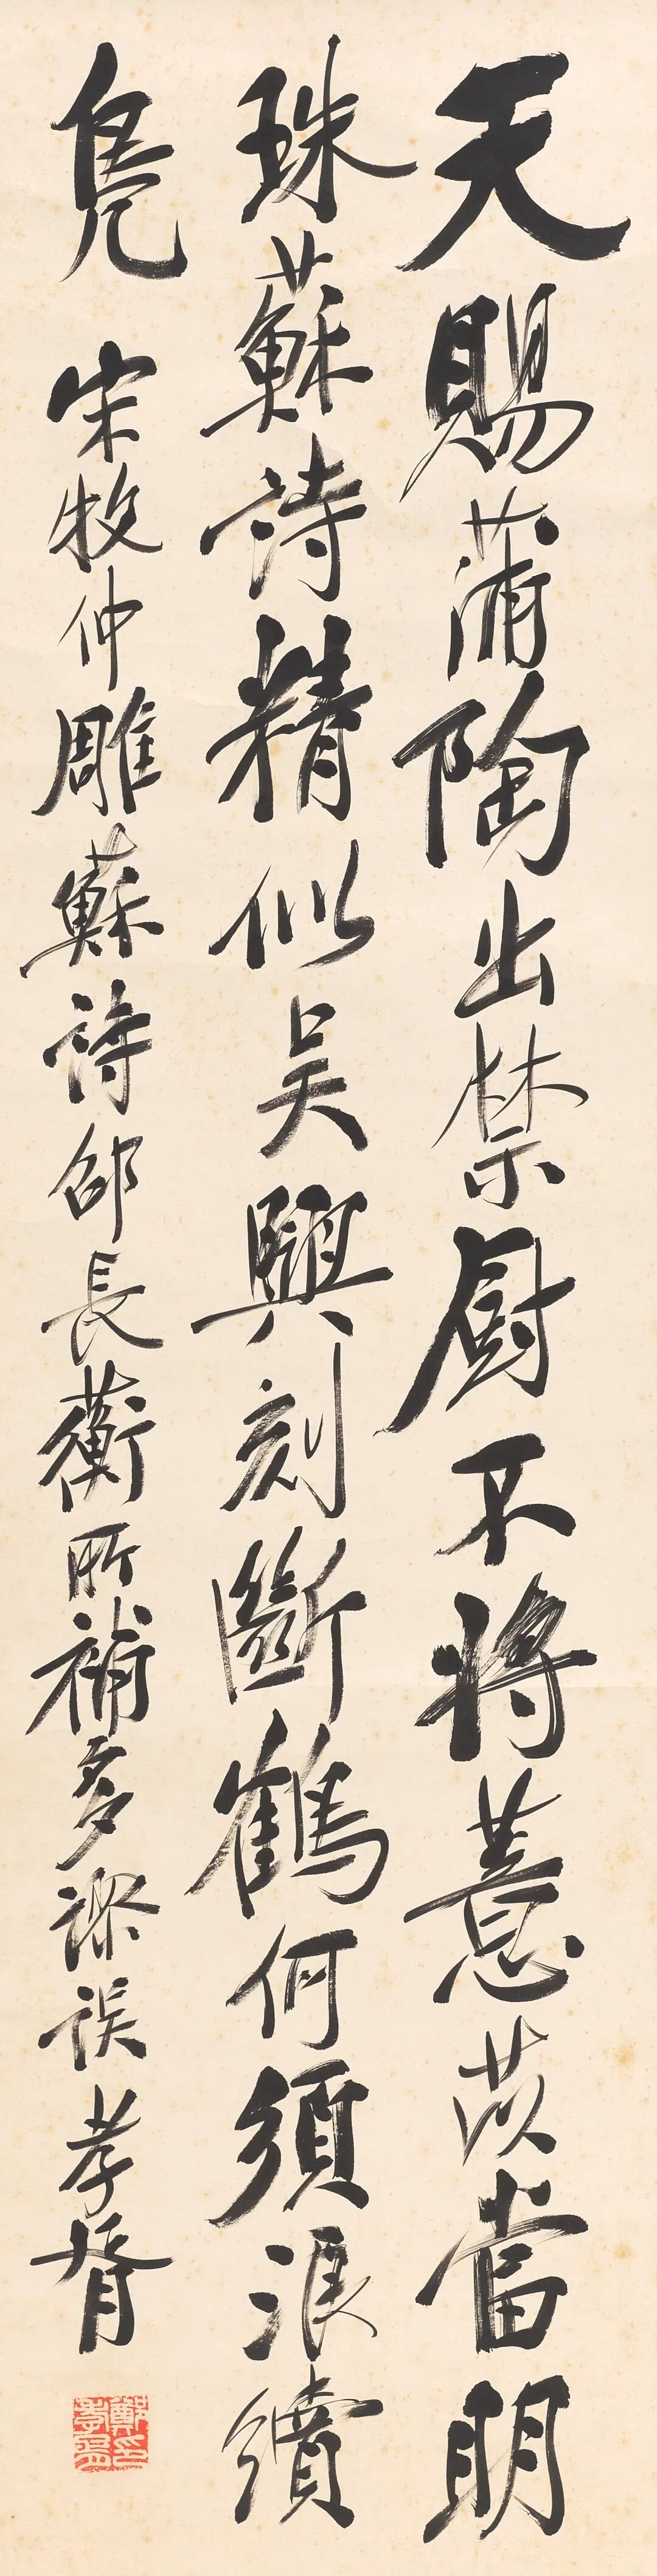 天賜蒲陶出禁厨不將薏苡當明
珠蘇詩精似吳興刻斷鶴何須浪續
鳧 宋牧仲雕蘇詩邵長蘅所補多謬誤孝胥
鄭印孝胥